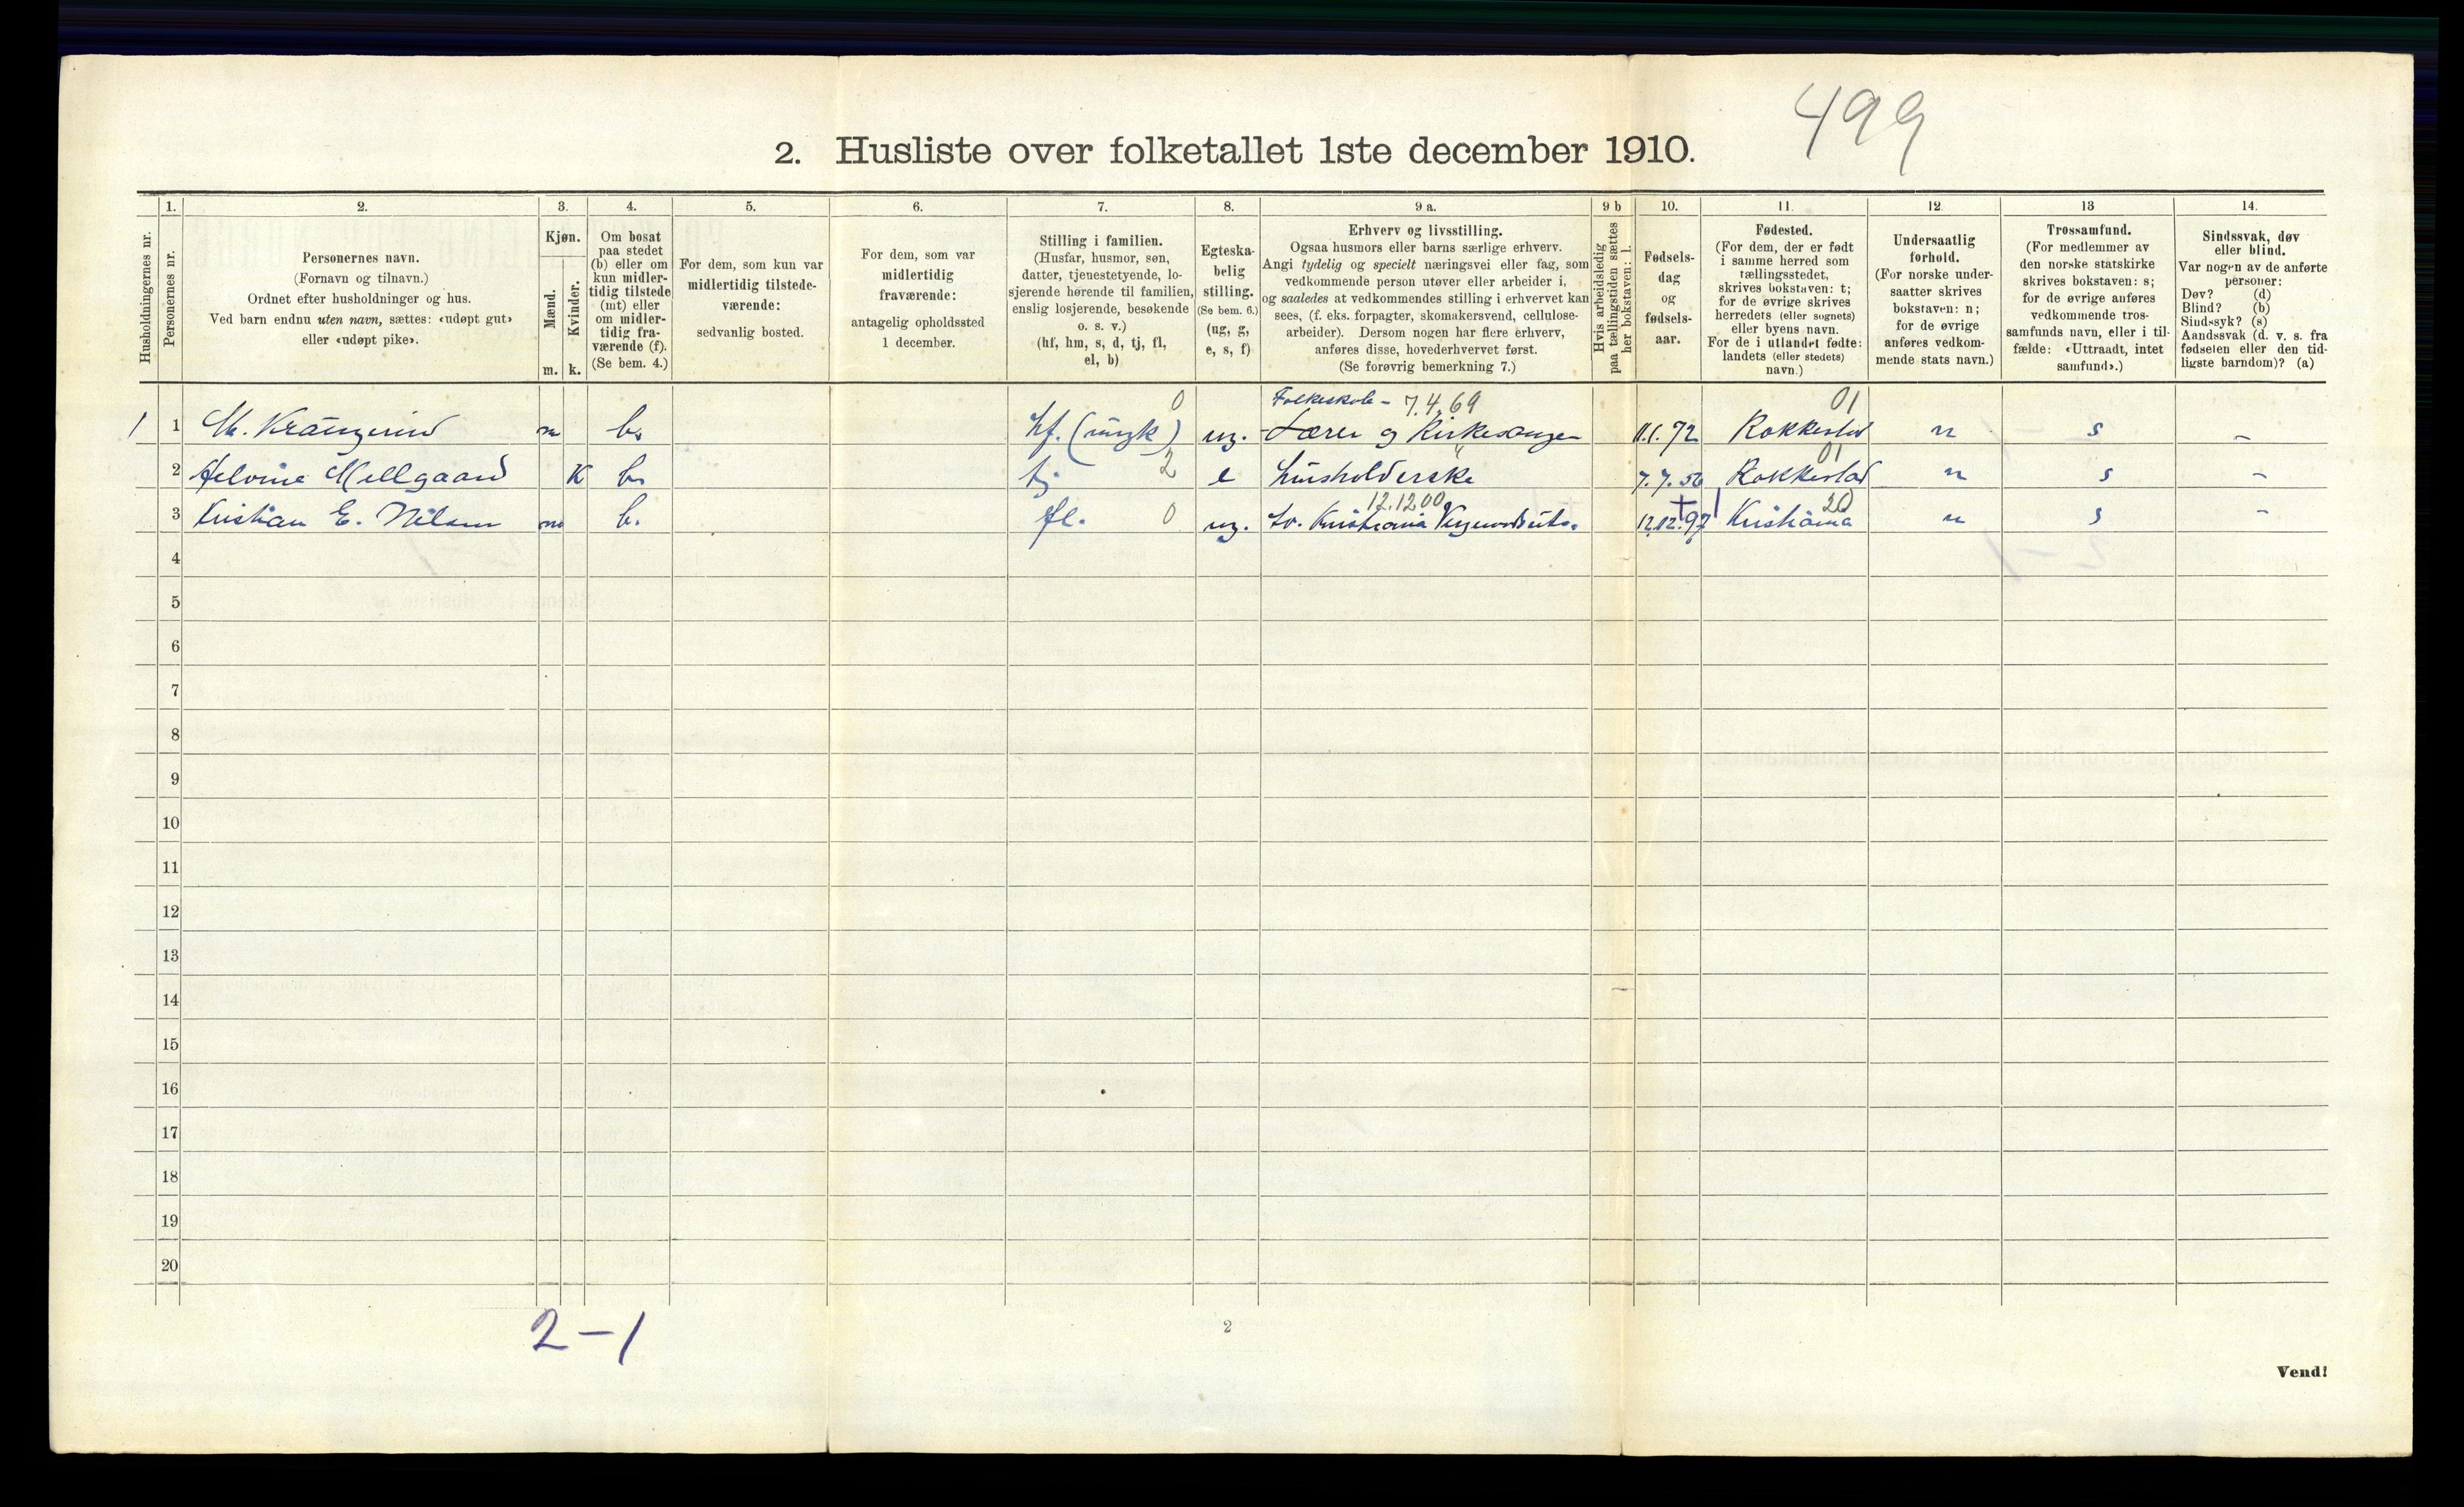 499
2. Husliste over folketallet 1ste december 1910.
Husholdningernes nr.
1.
Personernes nr.
2.
Personernes navn.
(Fornavn og tilnavn.)
Ordnet efter husholdninger og hus.
Ved barn endnu uten navn, sættes: «udøpt gut»
eller «udøpt pike».
3.
Kjøn.
Mænd.
Kvinder.
m. k.
4.
Om bosat
paa stedet
(b) eller om
kun midler-
tidig tilstede
(mt) eller
om midler-
tidig fra-
værende (f).
(Se bem. 4.)
5.
For dem, som kun var
midlertidig tilstede-
værende:
sedvanlig bosted.
6.
For dem, som var
midlertidig
fraværende:
antagelig opholdssted
1 december.
7.
Stilling i familien.
(Husfar, husmor, søn,
datter, tjenestetyende, lo-
sjerende hørende til familien,
enslig losjerende, besøkende
o. s. v.)
(hf, hm, s, d, tj, fl,
el, b)
8.
Egteska-
belig
stilling.
(Se bem. 6.)
(ug, g,
e, s, f)
9 a.
Erhverv og livsstilling.
Ogsaa husmors eller barns særlige erhverv.
Angi tydelig og specielt næringsvei eller fag, som
vedkommende person utøver eller arbeider i,
og saaledes at vedkommendes stilling i erhvervet kan
sees, (f. eks. forpagter, skomakersvend, cellulose-
arbeider). Dersom nogen har flere erhverv,
anføres disse, hovederhvervet først.
(Se forøvrig bemerkning 7.)
9 b
Hvis arbeidsledig
paa tællingstiden sættes
her bokstaven: l.
10.
Fødsels-
dag
og
fødsels-
aar.
11.
Fødested.
(For dem, der er født
i samme herred som
tællingsstedet,
skrives bokstaven: t;
for de øvrige skrives
herredets (eller sognets)
eller byens navn.
For de i utlandet fødte:
landets (eller stedets)
navn.)
12.
Undersaatlig
forhold.
(For norske under-
saatter skrives
bokstaven: n;
for de øvrige
anføres vedkom-
mende stats navn.)
13
Trossamfund.
(For medlemmer av
den norske statskirke
skrives bokstaven: s;
for de øvrige anføres
vedkommende tros-
samfunds navn, eller i til-
fælde: «Uttraadt, intet
samfund».)
14.
Sindssvak, døv
eller blind.
Var nogen av de anførte
personer:
Døv? (d)
Blind? (b)
Sindssyk? (s)
Aandssvak (d. v. s. fra
fødselen eller den tid-
ligste barndom)? (a)
0 Folkeskole - 7.4.69 01
1 1 m b. hf. (ungk) ug. Lærer og Kirkesanger 11.1.72 n s -
2 01
2 K b. tj e husholderske 7.7.56 Rakkestad n s -
0 12.1200 20
3 Kristian E. Nilsen m b. fl. ug. 12.12.97 Kristiania n s -
4
5
6
7
8
9
10
11
12
13
14
15
16
17
18
19
20
2-1
2
Vend!